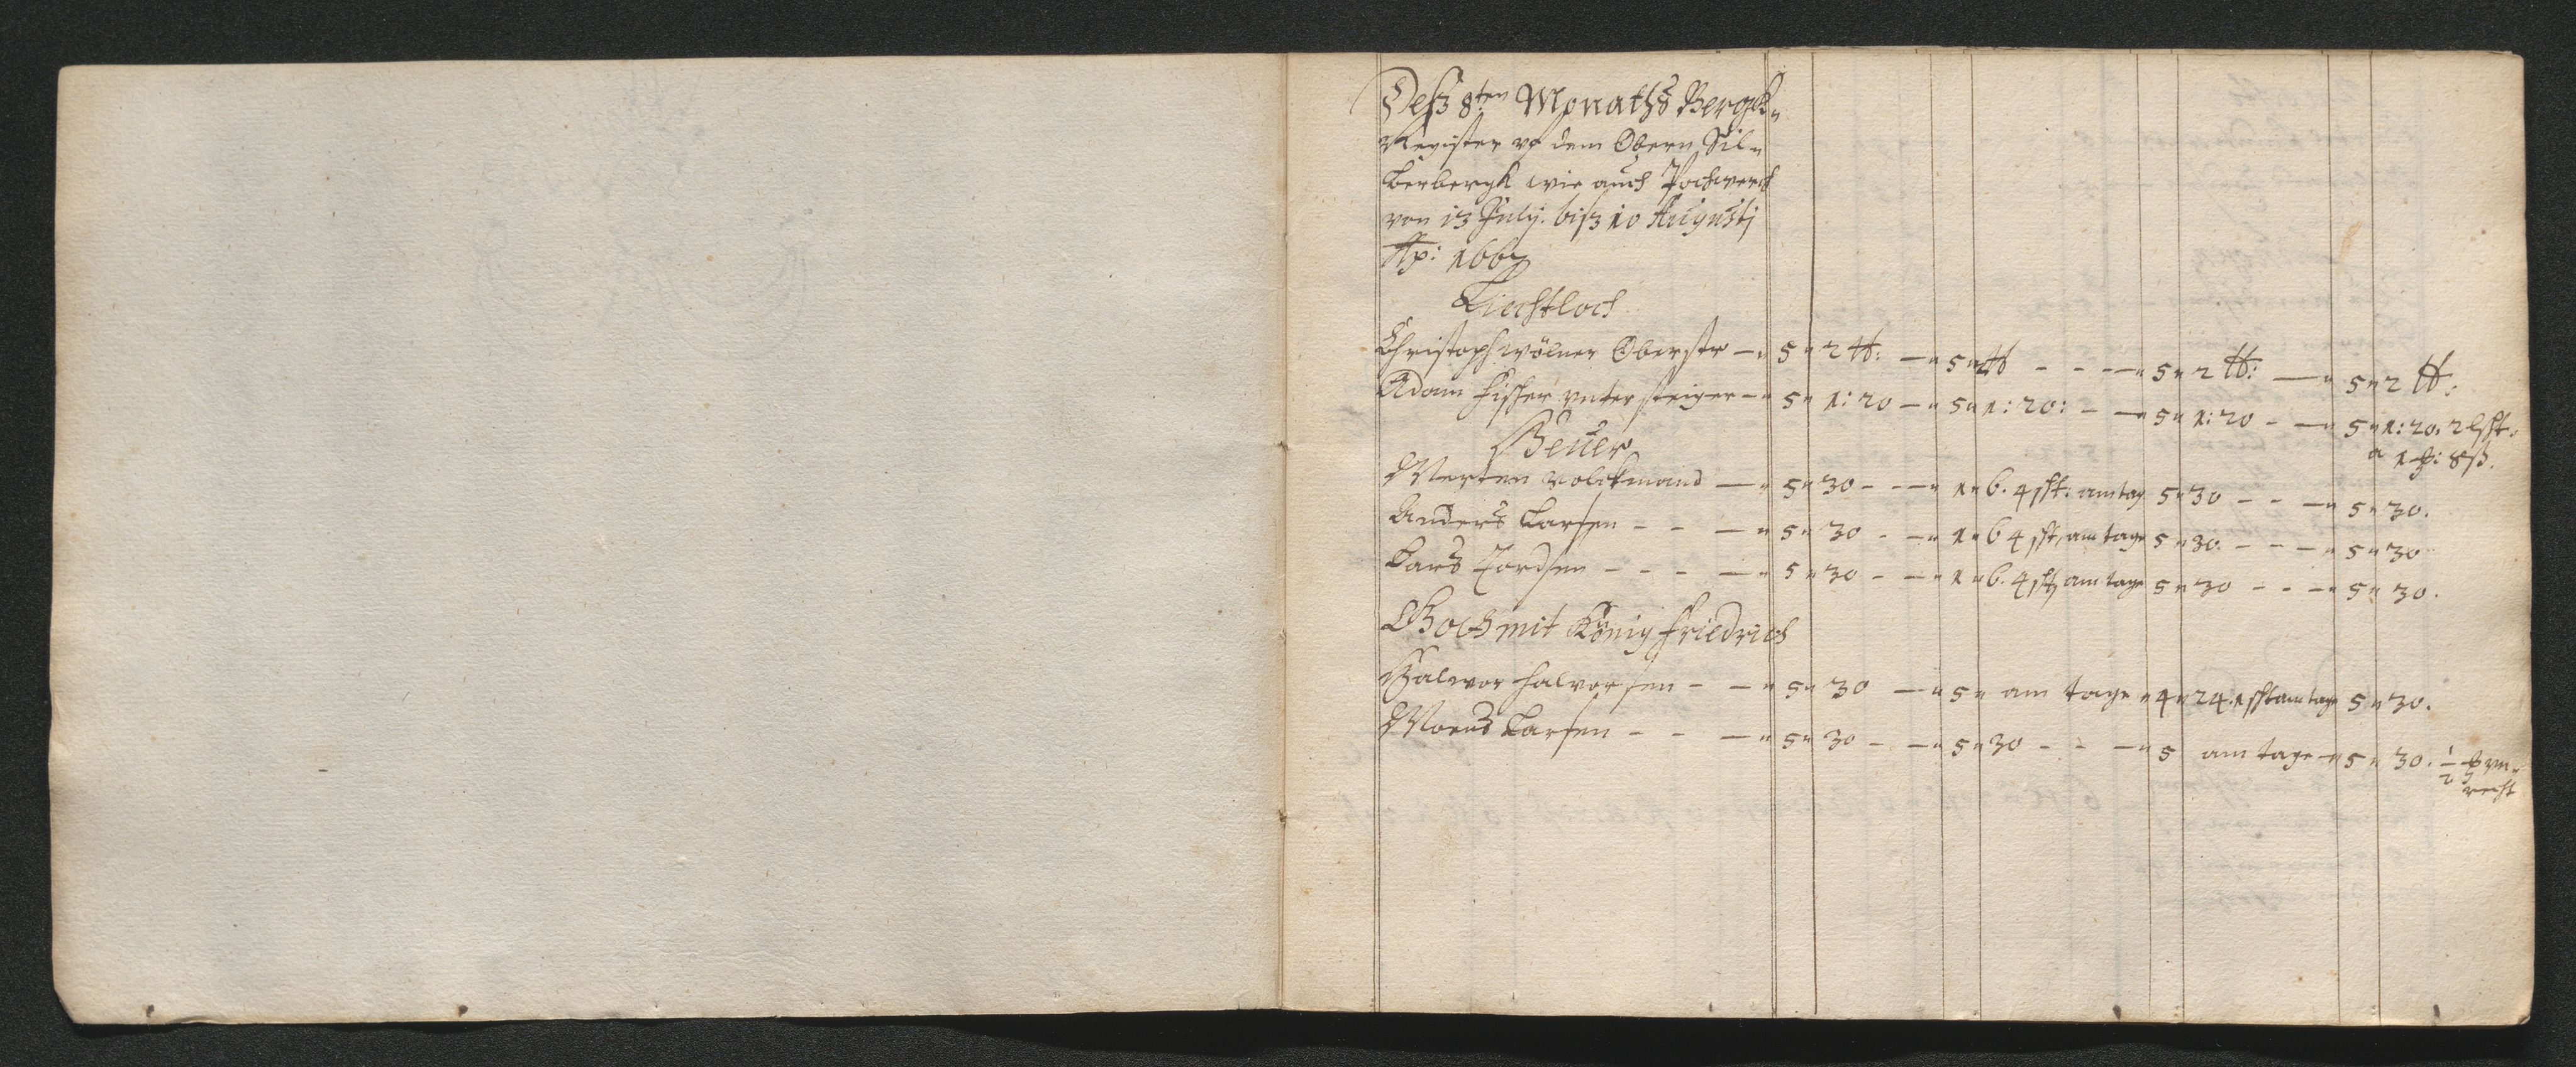 Deß 8ten Monaths Bergk-
Register vf dem Obern Sil-
berbergk wie auch Pochwerch
von 13 July. biß 10 Augusti
Ao: 1667
Liechtloch
Christoph wölner Oberstr — 5 " 2 tt: — 5 " 2 tt - - — 5 " 2 tt: — 5 " 2 tt:
Adam Fischer vntersteiger — 5 " 1: 20 — 5 " 1: 20: - — 5 " 1: 20 - — 5 " 1: 20. 2
Heuer
a 1 8 ß.
Merten volckmand — 5 " 30 - - — 1 " 6. 4 sht: am tag 5 " 30 - - — 5 " 30.
Anders Larsen - - — 5 " 30 - — 1 " 6 4 sht, am tage 5 " 30 - - — 5 " 30
Lars Tordsen - - - — 5 " 30 - — 1 " 6. 4 sht am tage 5 " 30 - - — 5 " 30.
Gott mit König Friedrich
Halvor halvorsen - — 5 " 30 — 5 " am tage " 4 " 24. 1 sht am tage 5 " 30.
Moens Larsen - - — 5 " 30 - — 5 " 30 - - — 5 am tage — 5 " 30. 1/2 vn-
recht